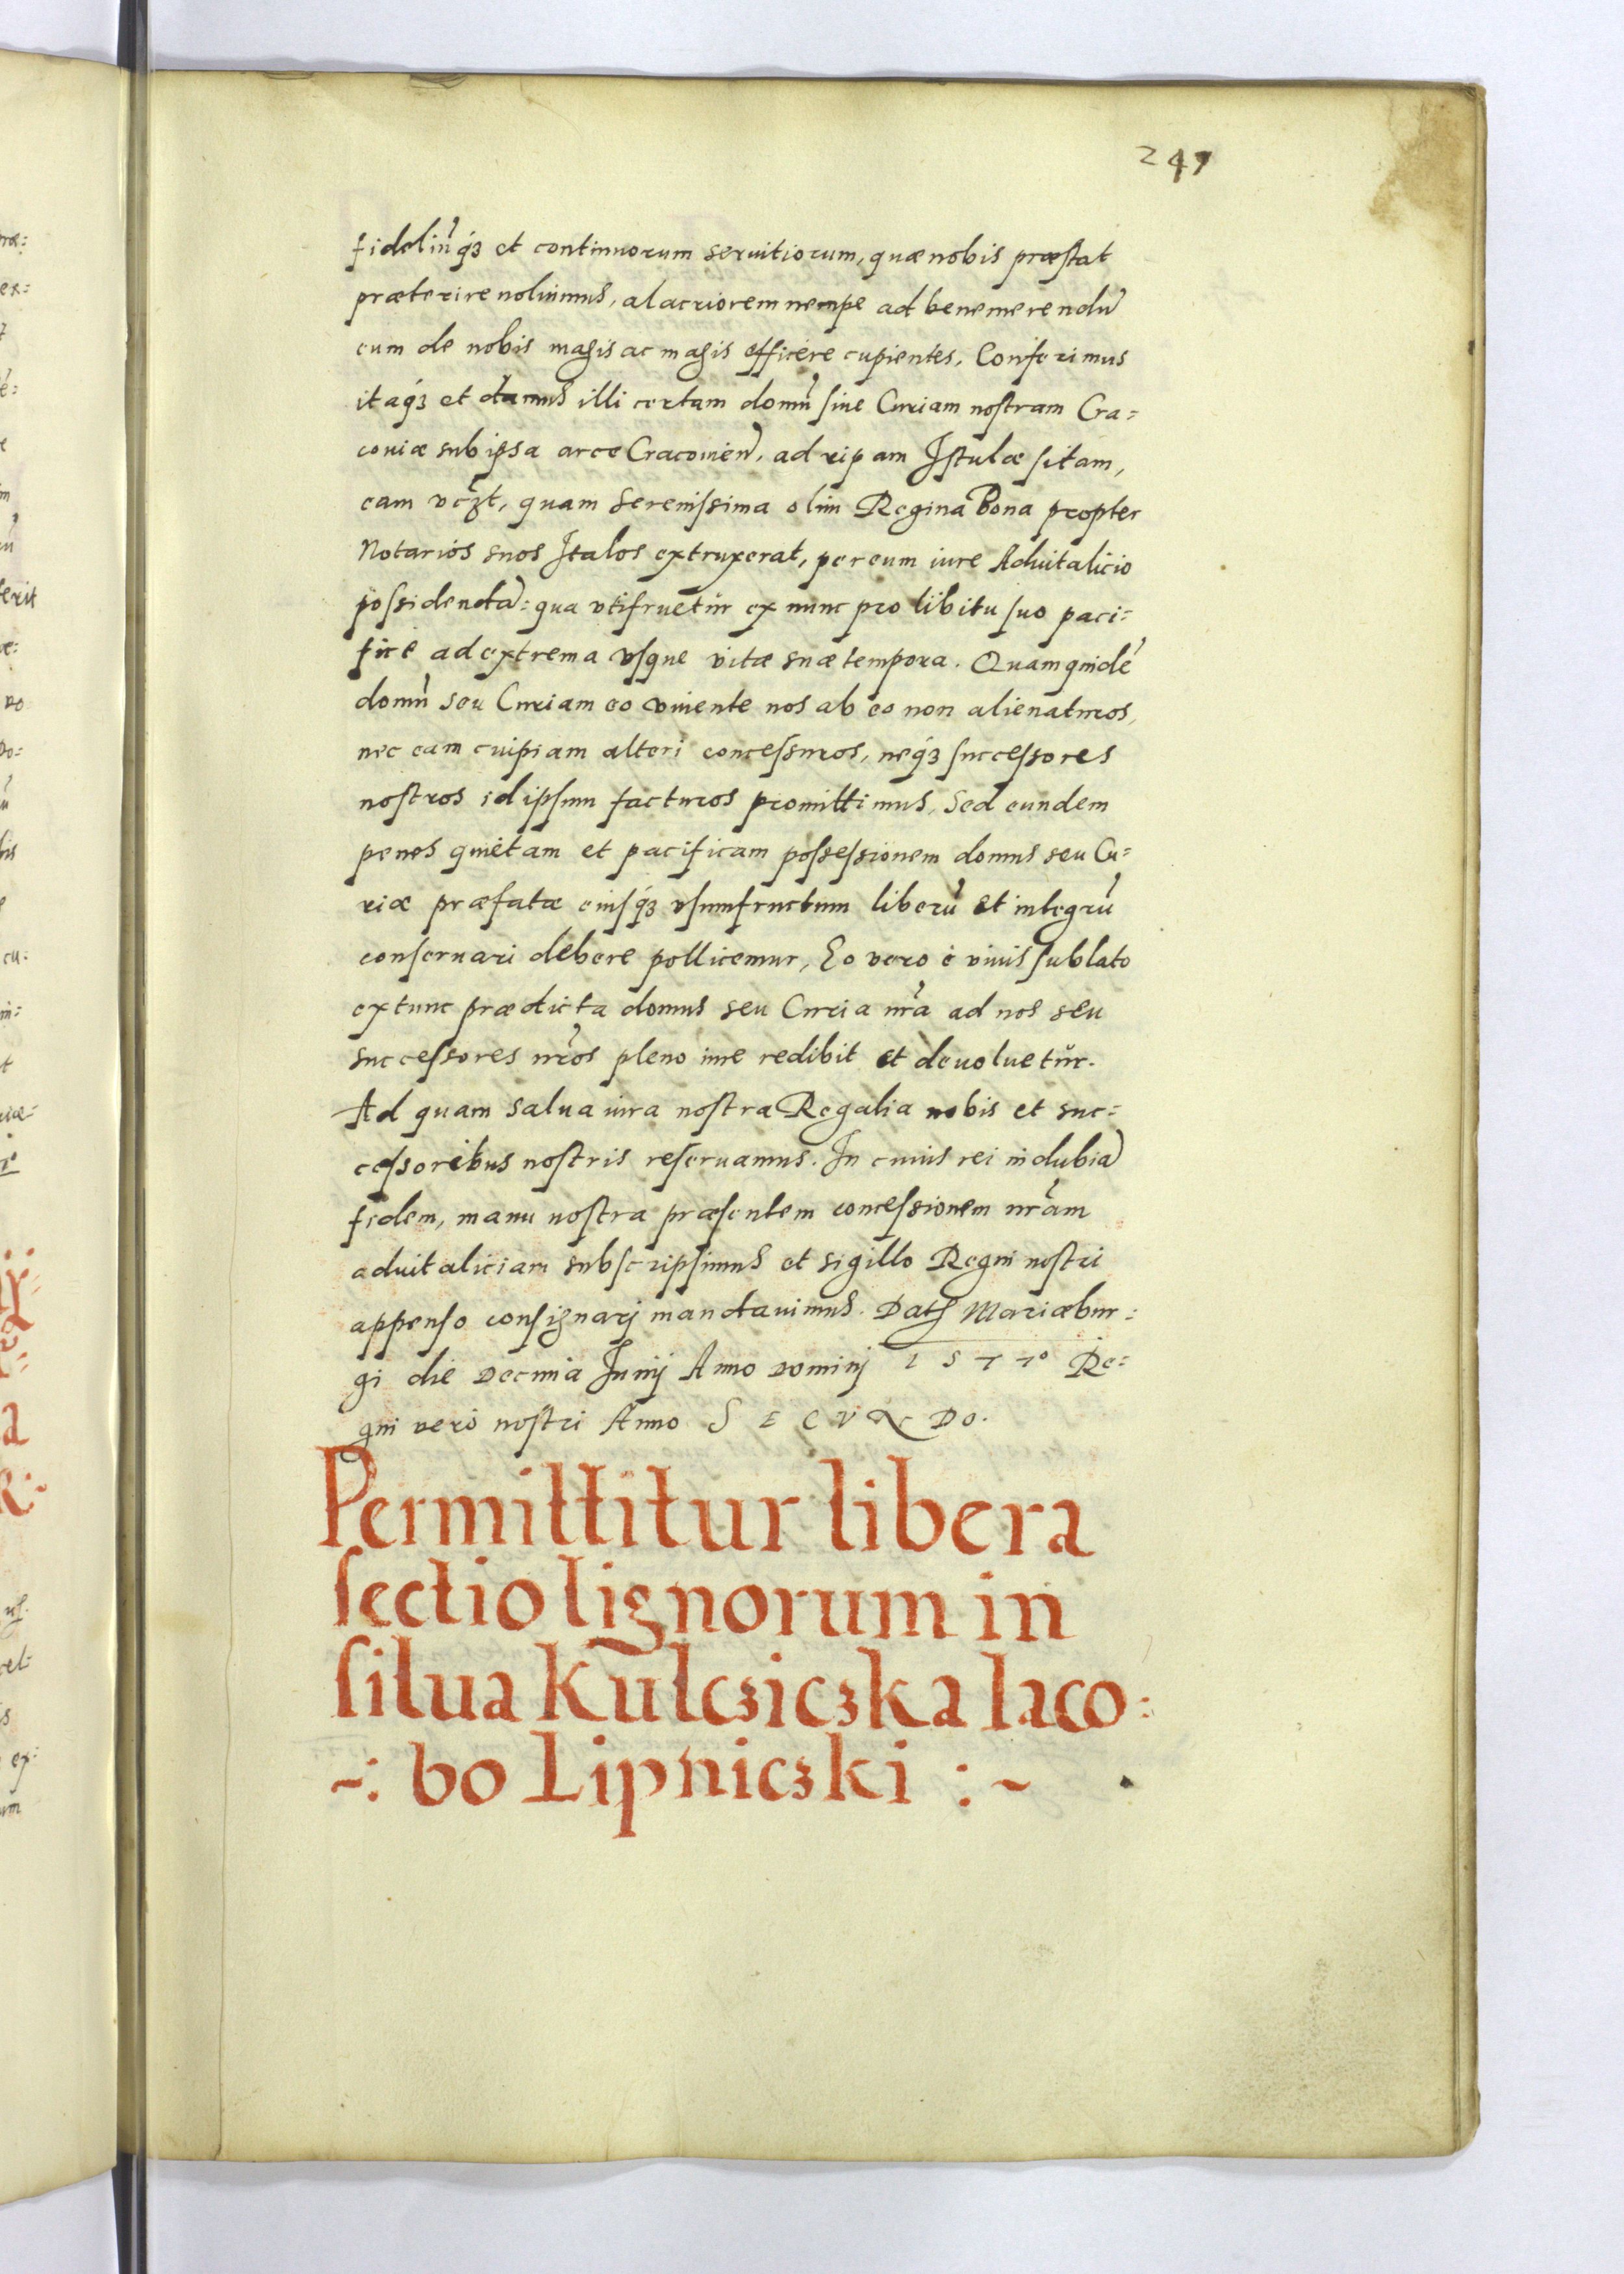 247
fideliũq́ꝫ et continuorum seruitiorum, quæ nobis præstat
præterire noluimus, alacriorem nempe ad benemerendũ
eum de nobis magis ac magis efficere cupientes. Conferimus
itaq́ꝫ et damus illi certam domũ siue Curiam nostram Cra=
couiæ sub ipsa arce Cracouień, ad ripam Istulæ sitam,
eam vcꝫt, quam Serenissima olim Regina Bona propter
Notarios suos Italos extruxerat, per eum iure Aduitalicio
possidendã: qua vtifruetur ex nunc pro libitu suo paci=
fice ad extrema vsque vitæ suæ tempora. Quam quidẽ
domũ seu Curiam eo viuente nos ab eo non alienaturos,
nec eam cuipiam alteri concessuros, neq́ꝫ successores
nostros id ipsum facturos promittimus, Sed eundem
penes quietam et pacificam possessionem domus seu Cu=
riæ præfatæ eiusq́ꝫ vsumfructum liberũ et integrũ
conseruari debere pollicemur, Eo vero è viuis sublato
extunc prædicta domus seu Curia nr̃a ad nos seu
successores nr̃os pleno iure redibit et deuoluetur.
Ad quam salua iura nostra Regalia nobis et suc=
cessoribus nostris reseruamus. In cuius rei indubiã
fidem, manu nostra præsentem concessionem nr̃am
aduitaliciam subscripsimus et sigillo Regni nostri
appenso consignarj mandauimus. Datꝭ Mariæbur=
gi die Decima Junij Anno Dominj 1577o Re=
gni vero nostri Anno SECVNDO.
Permittitur libera
sectio lignorum in
silua Kulcꝫicꝫka Iaco:
~: bo Lipnicꝫki :~